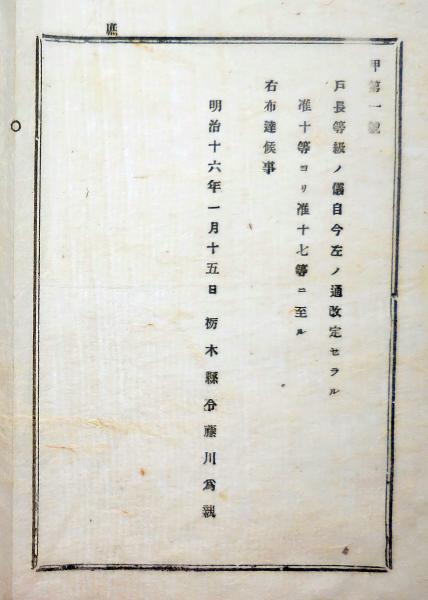 甲第一號
戸長等級ノ儀自今左ノ通改定セラル
准十等ヨリ准十七等ニ至ル
右布達候事
明治十六年一月十五日 栃木縣令藤川爲親